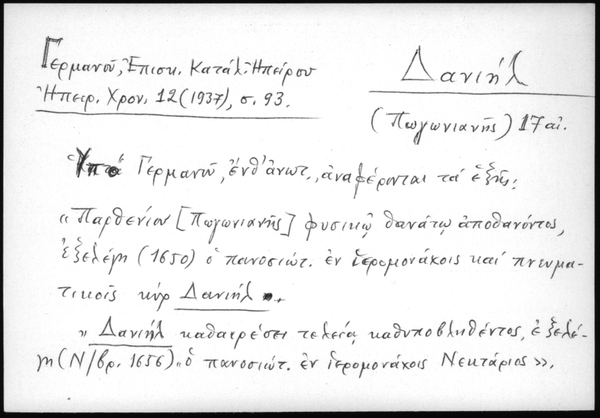 Γερμανοῦ, Ἐπισκ. Κατάλ. Ἠπείρου
Ἠπειρ. Χρον. 12 (1937), σ. 93.
Δανιήλ
(Πωγωνιανῆς) 17 αἰ.
Ὑπὸ Γερμανοῦ, ἔνθ' ἀνωτ., ἀναφέρονται τὰ ἑξῆς:
« Παρθενίου [Πωγωνιανῆς] φυσικῷ θανάτῳ ἀποθανόντος,
ἐξελέγη (1650) ὁ πανοσιώτ. ἐν ἱερομονάχοις καὶ πνευμα-
τικοῖς κὺρ Δανιήλ.
» Δανιήλ καθαιρέσει τελείᾳ καθυποβληθέντος, ἐξελέ-
γη (Ν/βρ. 1656) « ὁ πανοσιώτ. ἐν ἱερομονάχοις Νεκτάριος ».